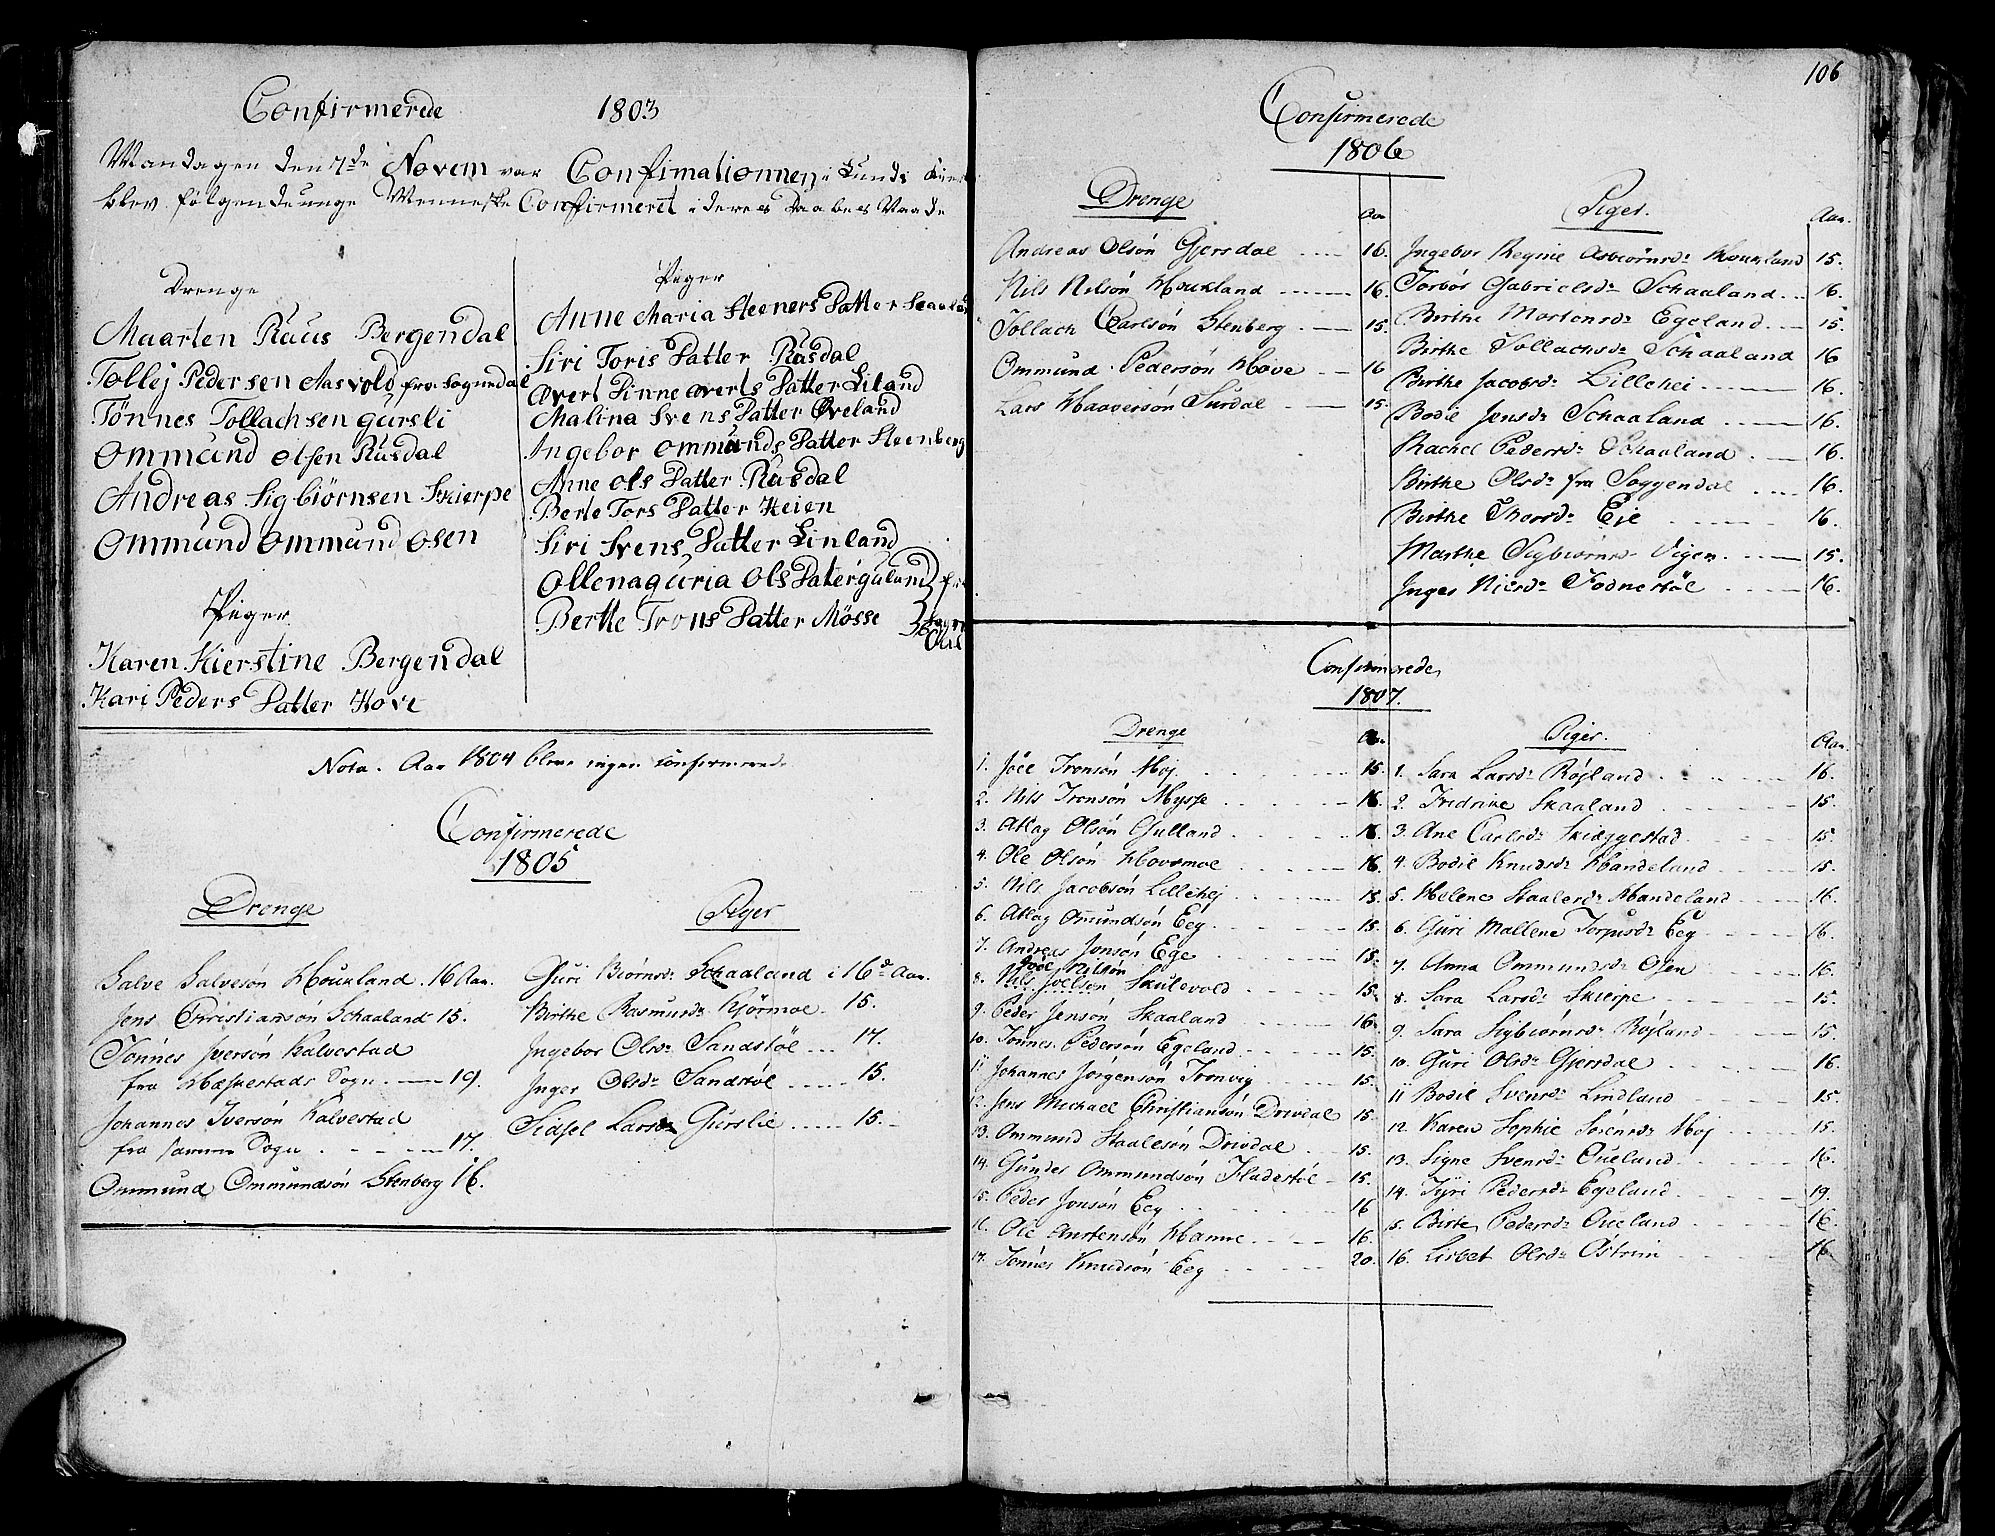 Confirmerede 1803
Mandagen den 7de Novem var Confimationnen i Lunds Kir
blev følgende unge Menneske Confirmerit i deres Daabes
Drenge
Maarten Ruus Bergendal
Tollej Pedersen Aasvold fra Sogndal
Tönnes Tollachsen gursli
Ommund Olsen Rusdal
Andreas Sigbiørnsen Skierpe
Ommund Ommund Osen
Piger
Karen Kierstine Bergendal
Kari Peders Datter Hove
Piger
Anne Maria Steeners Datter
Siri Toris Datter Rusdal
Overt Pinne overts Datter Liland
Malina Svens Datter Øveland
Ingebor ommunds Datter Steenberg
Anne ols Datter Rusdal
Berte Tors Datter Heien
Siri Svens Datter Linland
Ollenaguria Ols Dater guland
Berthe Trons Datter Mösse
Nota. Aar 1804 bleve ingen confirmered.
Confirmerede
1805
Drenge
Salve Salvesón Houkland. 16 Aar.
Jens Christiansón Schaaland 15.
Tónnes Iversón Kalvestad
fra Næskestads Sogn. 19.
Johannes Iversón Kalvestad
fra samme Sogn 17.
Ommund Ommundsón Stenberg 16.
Piger
Guri Biørnsdr Schaaland i 16de Aar.
Birthe Rasmusdr Kjörmoe 15.
Ingebor Olsdr Sandstöl 17.
Inger Olsdr Sandstöl 15.
Sidsel Larsdr Gurslie 15.
106
Confirmerede
1806
Drenge Aar
Andreas Olsón Gjersdal 16.
Nils Nilsón Houkland 16.
Tollach Carlsón Stenberg 15.
Ommund Pedersón Hove 16
Lars Haaversón Surdal 15.
Piger. Aar.
Ingebor Regine Asbiørnsdr Houkland 15.
Torbor Gabrielsdr Schaaland 16.
Birthe Mortensdr Egeland 15.
Birthe Tollachsdr Schaaland 16
Birthe Jacobsdr Lillehei 16.
Bodil Jensdr Schaaland 16.
Rachel Pedersdr Schaaland 16.
Birthe Olsdr fra Soggendal 16.
Birthe Thorsdr Eje 16.
Marthe Sigbiørnsdr Vigen 15.
Inger Nilsdr Fodnestöl 16.
Confirmerede
1807.
Drenge Aar.
1. Jöel Tronsón Moj 15.
2. Nils Tronsón Mysse 16.
3. Atlag Olsón Gulland 16.
4. Ole Olsón Hovsmoe 16.
5. Nils Jacobsón Lillehej 15.
6. Atlag Omundsón Eeg 15.
7. Andreas Jonsón Ege 15.
Joel Nilsón
8. Nils Joelsón Skulevold 15.
9. Peder Jensón Skaaland 16.
10. Tónnes Pedersón Egeland 15.
11 Johannes Jórgensón Tronvig 15.
12. Jens Michael Christiansón Drivdal 15.
13. Ommund Staalesón Drivdal 15.
14. Gunder Ommundsón Fladestöl 15.
15. Peder Jonsón Eeg 16
16. Ole Anstensón Hamre 16.
17. Tónnes Knudsón Eeg 20.
Piger. Aar.
1. Sara Larsdr Röjland 16.
2. Fredrike Skaaland 15.
3. Ane Carlsdr Skieggestad 15.
4. Bodil Knudsdr Handeland 15.
5. Helene Staalesdr Handeland 16.
6. Guri Mallene Torjusdr Eeg 16.
7. Anna Ommundsdr Osen 16.
8. Sara Larsdr Skierpe 15.
9. Sara Sigbiørnsdr Röjland 15.
10. Guri Olsdr Gjersdal 16.
11 Bodil Svensdr Lindland 15.
12. Karen Sophie Sörensdr Moj 15.
13. Signe Svensdr Oueland 16.
14. Tyri Pedersdr Egeland 19.
15. Birte Pedersdr Oueland 16.
16. Lisbet Olsdr Östrein 16.